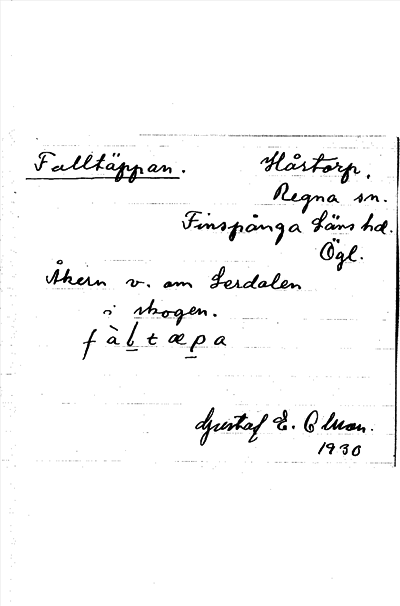 Falltäppan. Håstorp.
Regna sn.
Finspånga Läns hd.
Ögl.
Åkern v. om Lerdalen
i skogen.
f à l t æ p a
Gustaf E. Olsson.
1930